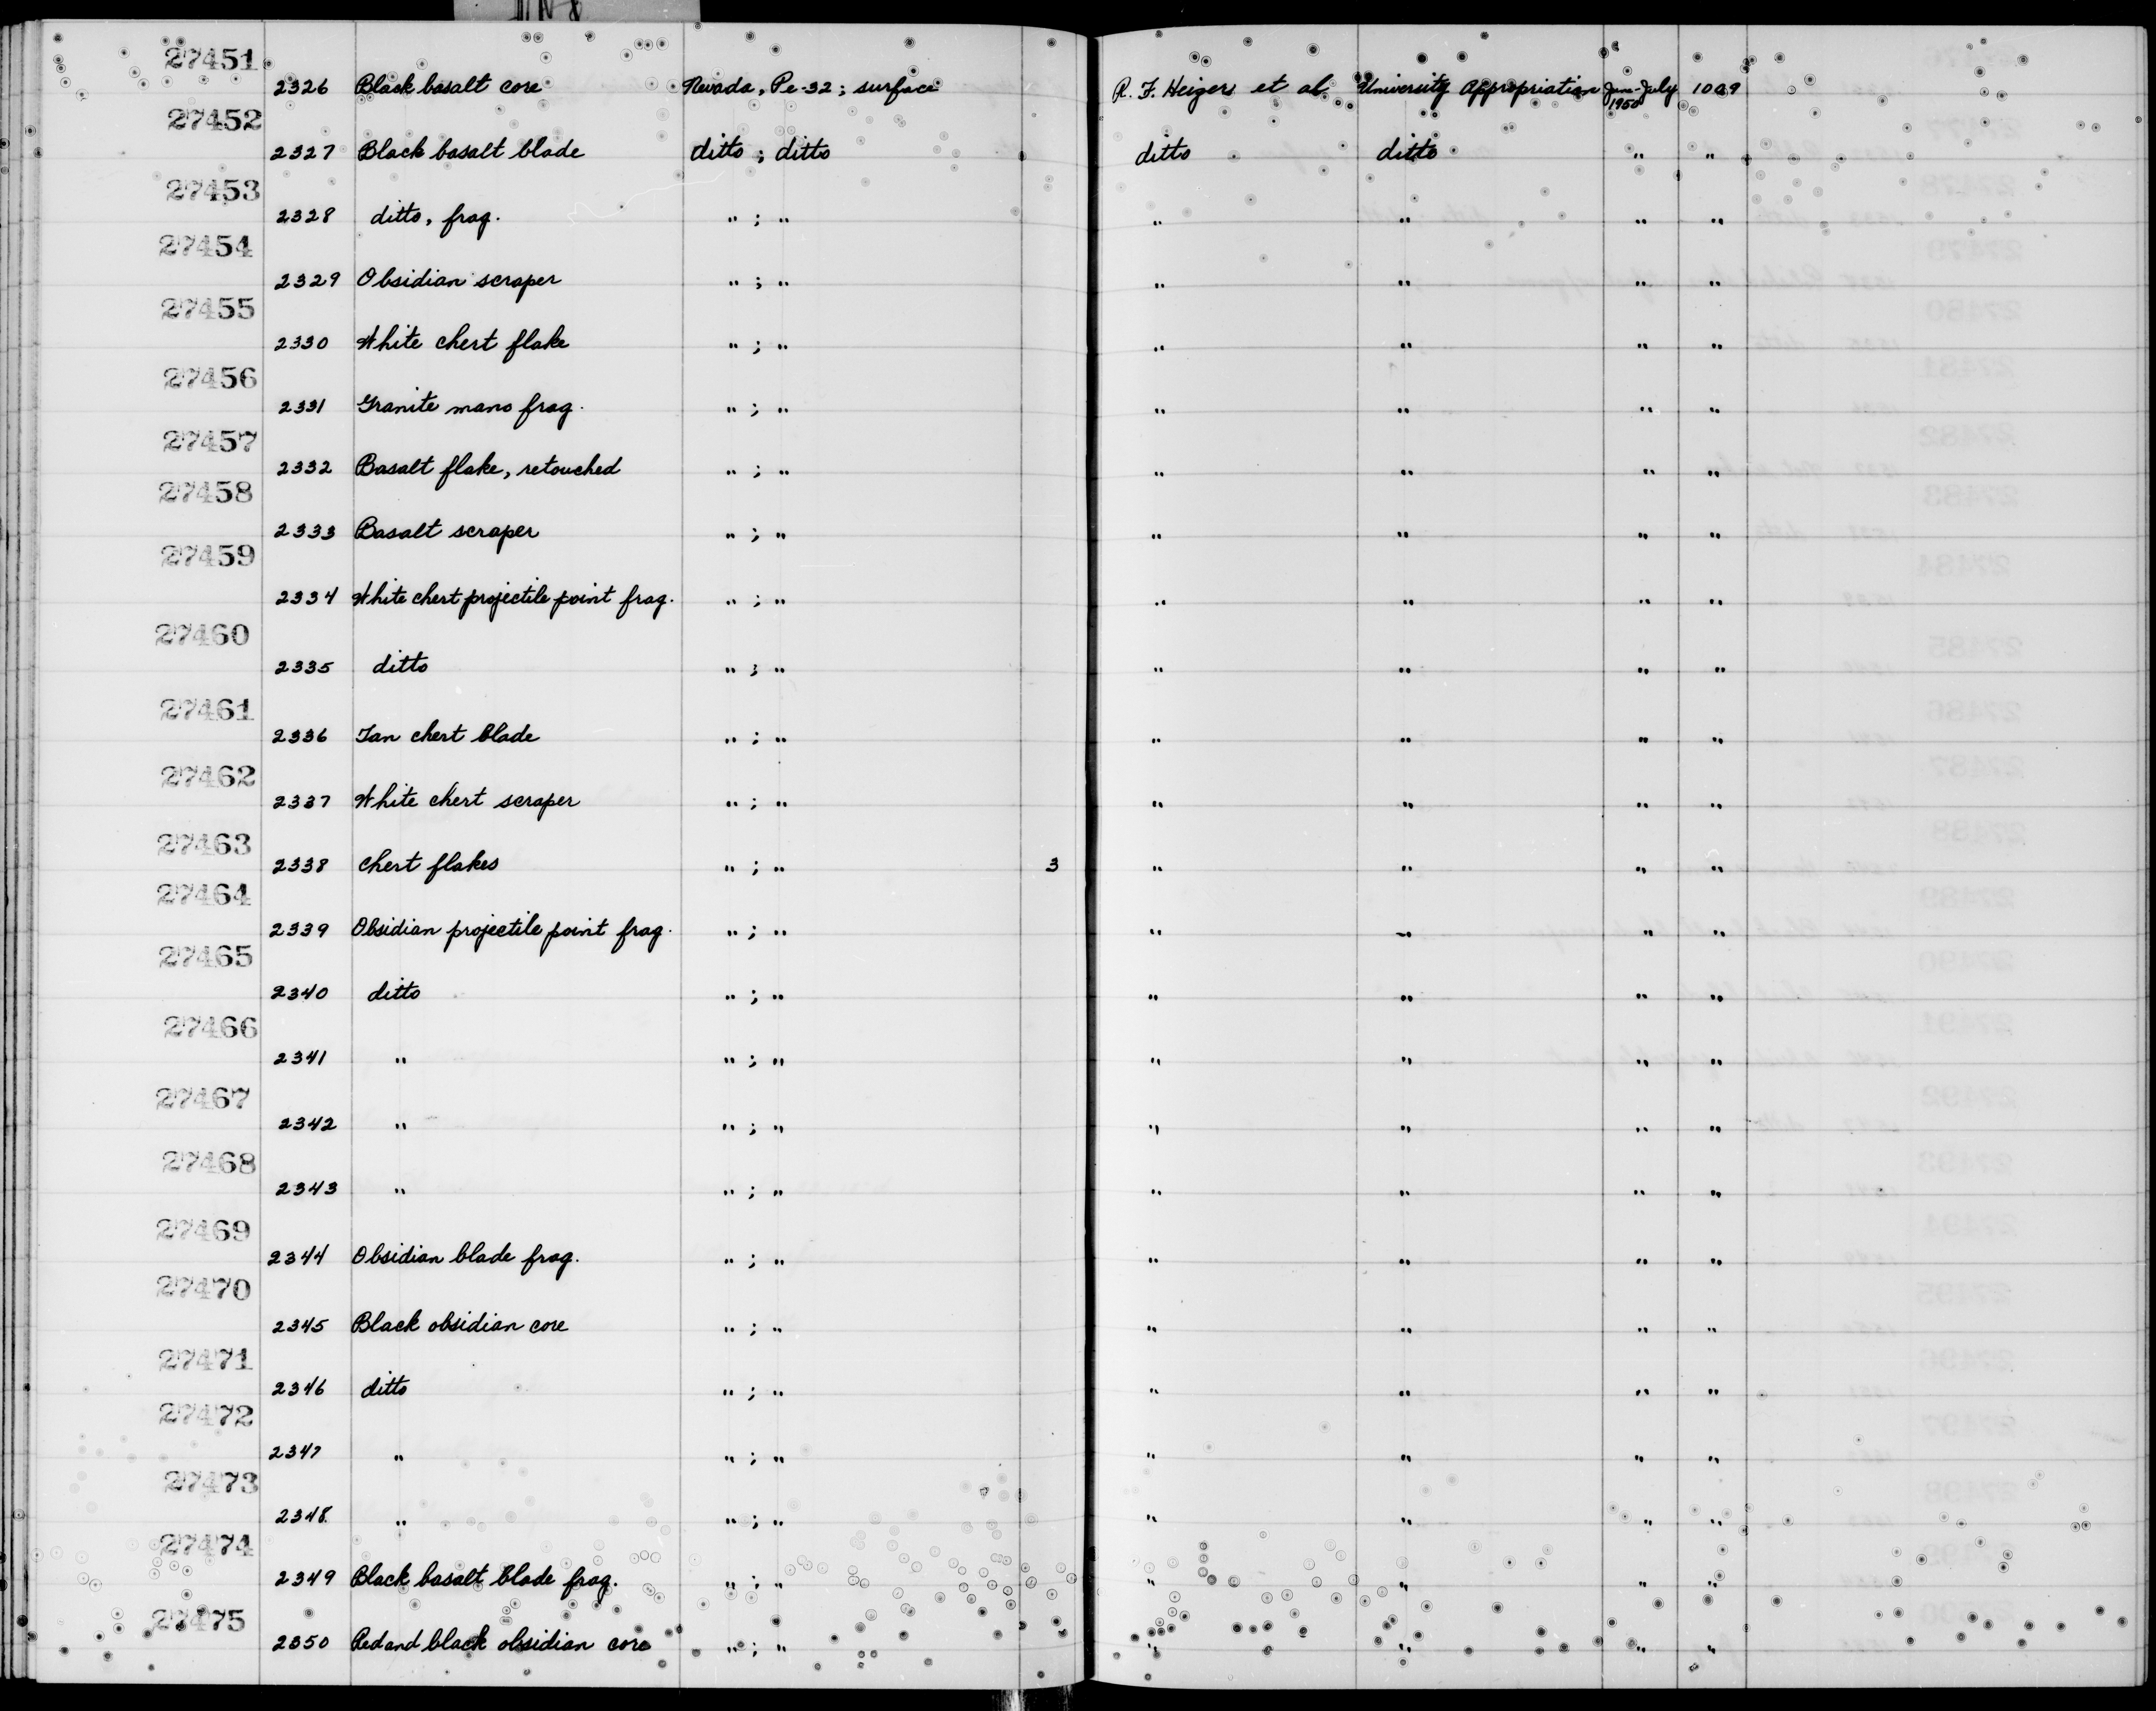 27451
2326 Black basalt core Nevada, Pe-32; surface R. F. Heizer et al University Appropriation Jun-July 1950 1029
27452
2327 Black basalt blade ditto ; ditto ditto ditto " "
27453
2328 ditto, frag. " ; " " " " "
27454
2329 Obsidian scraper " ; " " " " "
27455
2330 White chert flake " ; " " " " "
27456
2331 Granite mano frag. " ; " " " " "
27457
2332 Basalt flake, retouched " ; " " " " "
27458
2333 Basalt scraper " ; " " " " "
27459
2334 White chert projectile point frag. " ; " " " " "
27460
2335 ditto " ; " " " " "
27461
2336 Tan chert blade " ; " " " " "
27462
2337 White chert scraper " ; " " " " "
27463
2338 Chert flakes " ; " 3 " " " "
27464
2339 Obsidian projectile point frag. " ; " " " " "
27465
2340 ditto " ; " " " " "
27466
2341 " " ; " " " " "
27467
2342 " " ; " " " " "
27468
2343 " " ; " " " " "
27469
2344 Obsidian blade frag. " ; " " " " "
27470
2345 Black obsidian core " ; " " " " "
27471
2346 ditto " ; " " " " "
27472
2347 " " ; " " " " "
27473
2348 " " ; " " " " "
27474
2349 Black basalt blade frag. " ; " " " " "
27475
2350 Red and black obsidian core " ; " " " " "